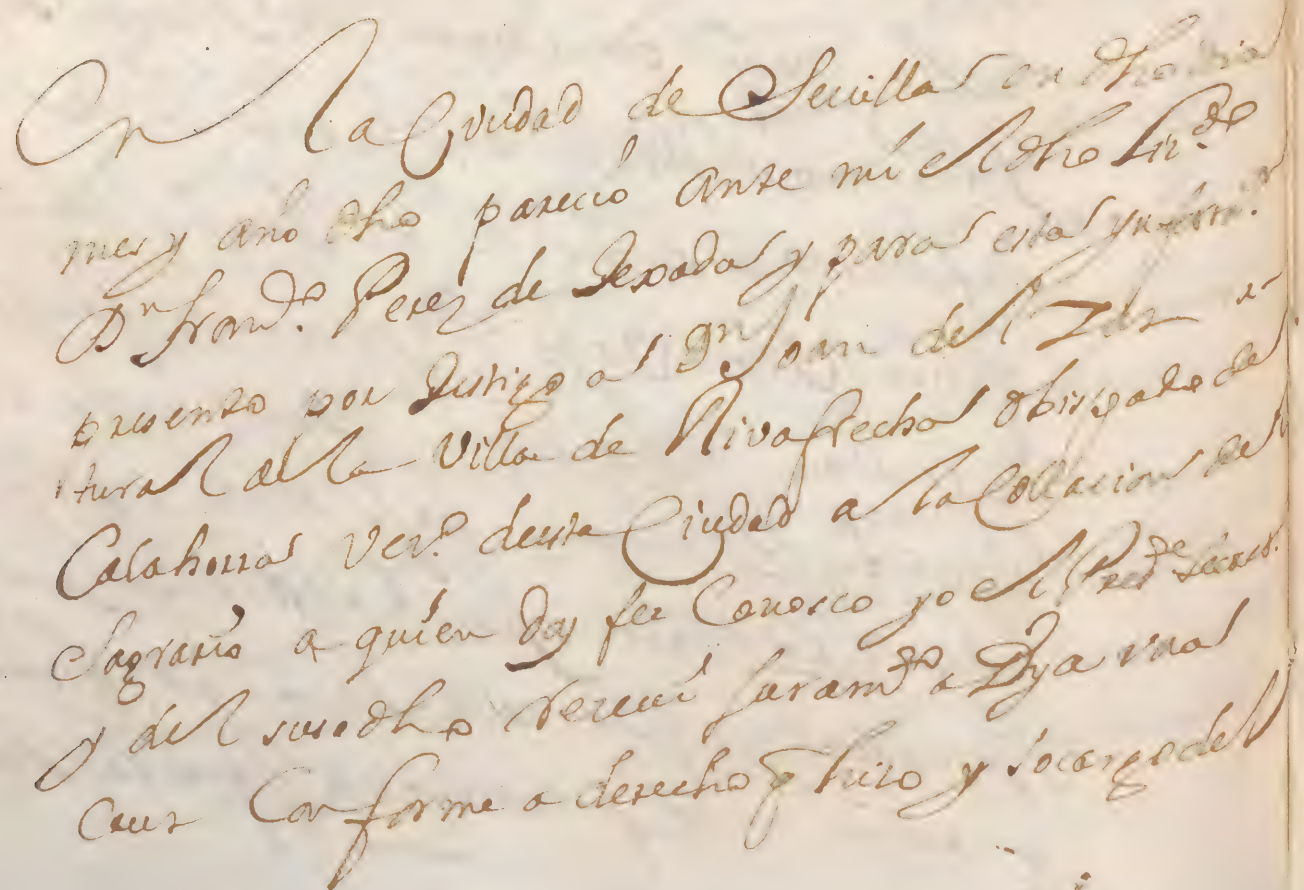 En la Ciudad de Seuilla en dho dia
mes y año dho parecio ante mi el dho Lizdo
Dn Frando Perez de Texada y para esta ynformon
presento por testigo a Dn Joan del na
tural de la Villa de Rivafrecha obispado de
Calahorra vezo desta Ciudad a la Collacion del
Sagrario a quien doy fee Conosco yo el Prete secreto
y del susodho receui juramto a D y a una
Cruz Conforme a derecho q hizo y socargo del